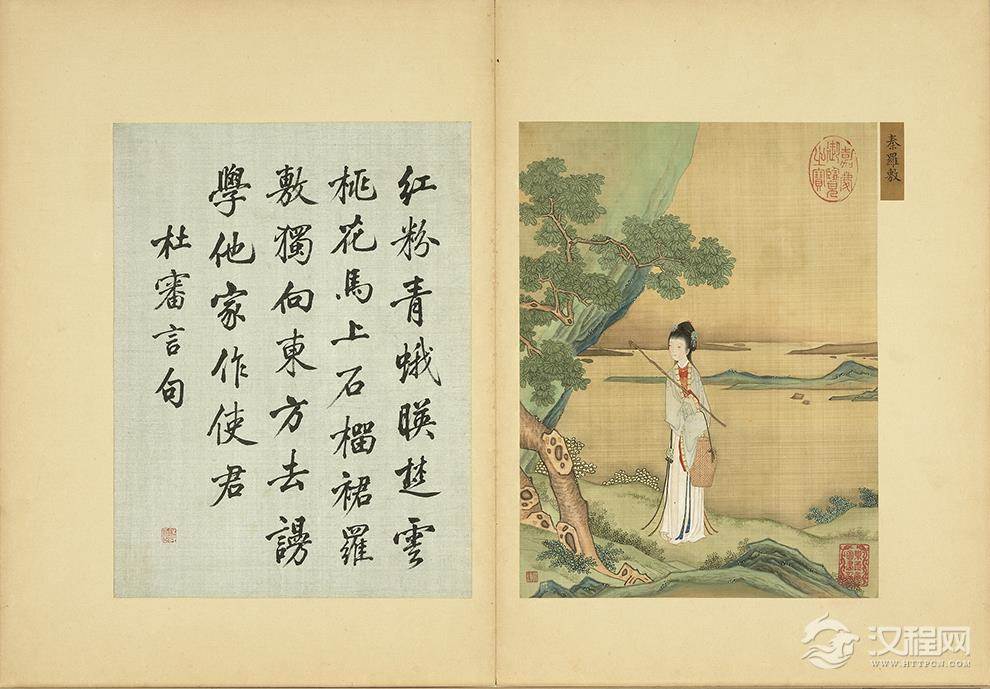 秦羅敷
嘉慶
御覽
之寶
紅粉青蛾暎楚雲
桃花馬上石橊裙羅
敷獨向東方去謾
學他家作使君
杜審言句
汉程网
WWW.HTTPCN.COM